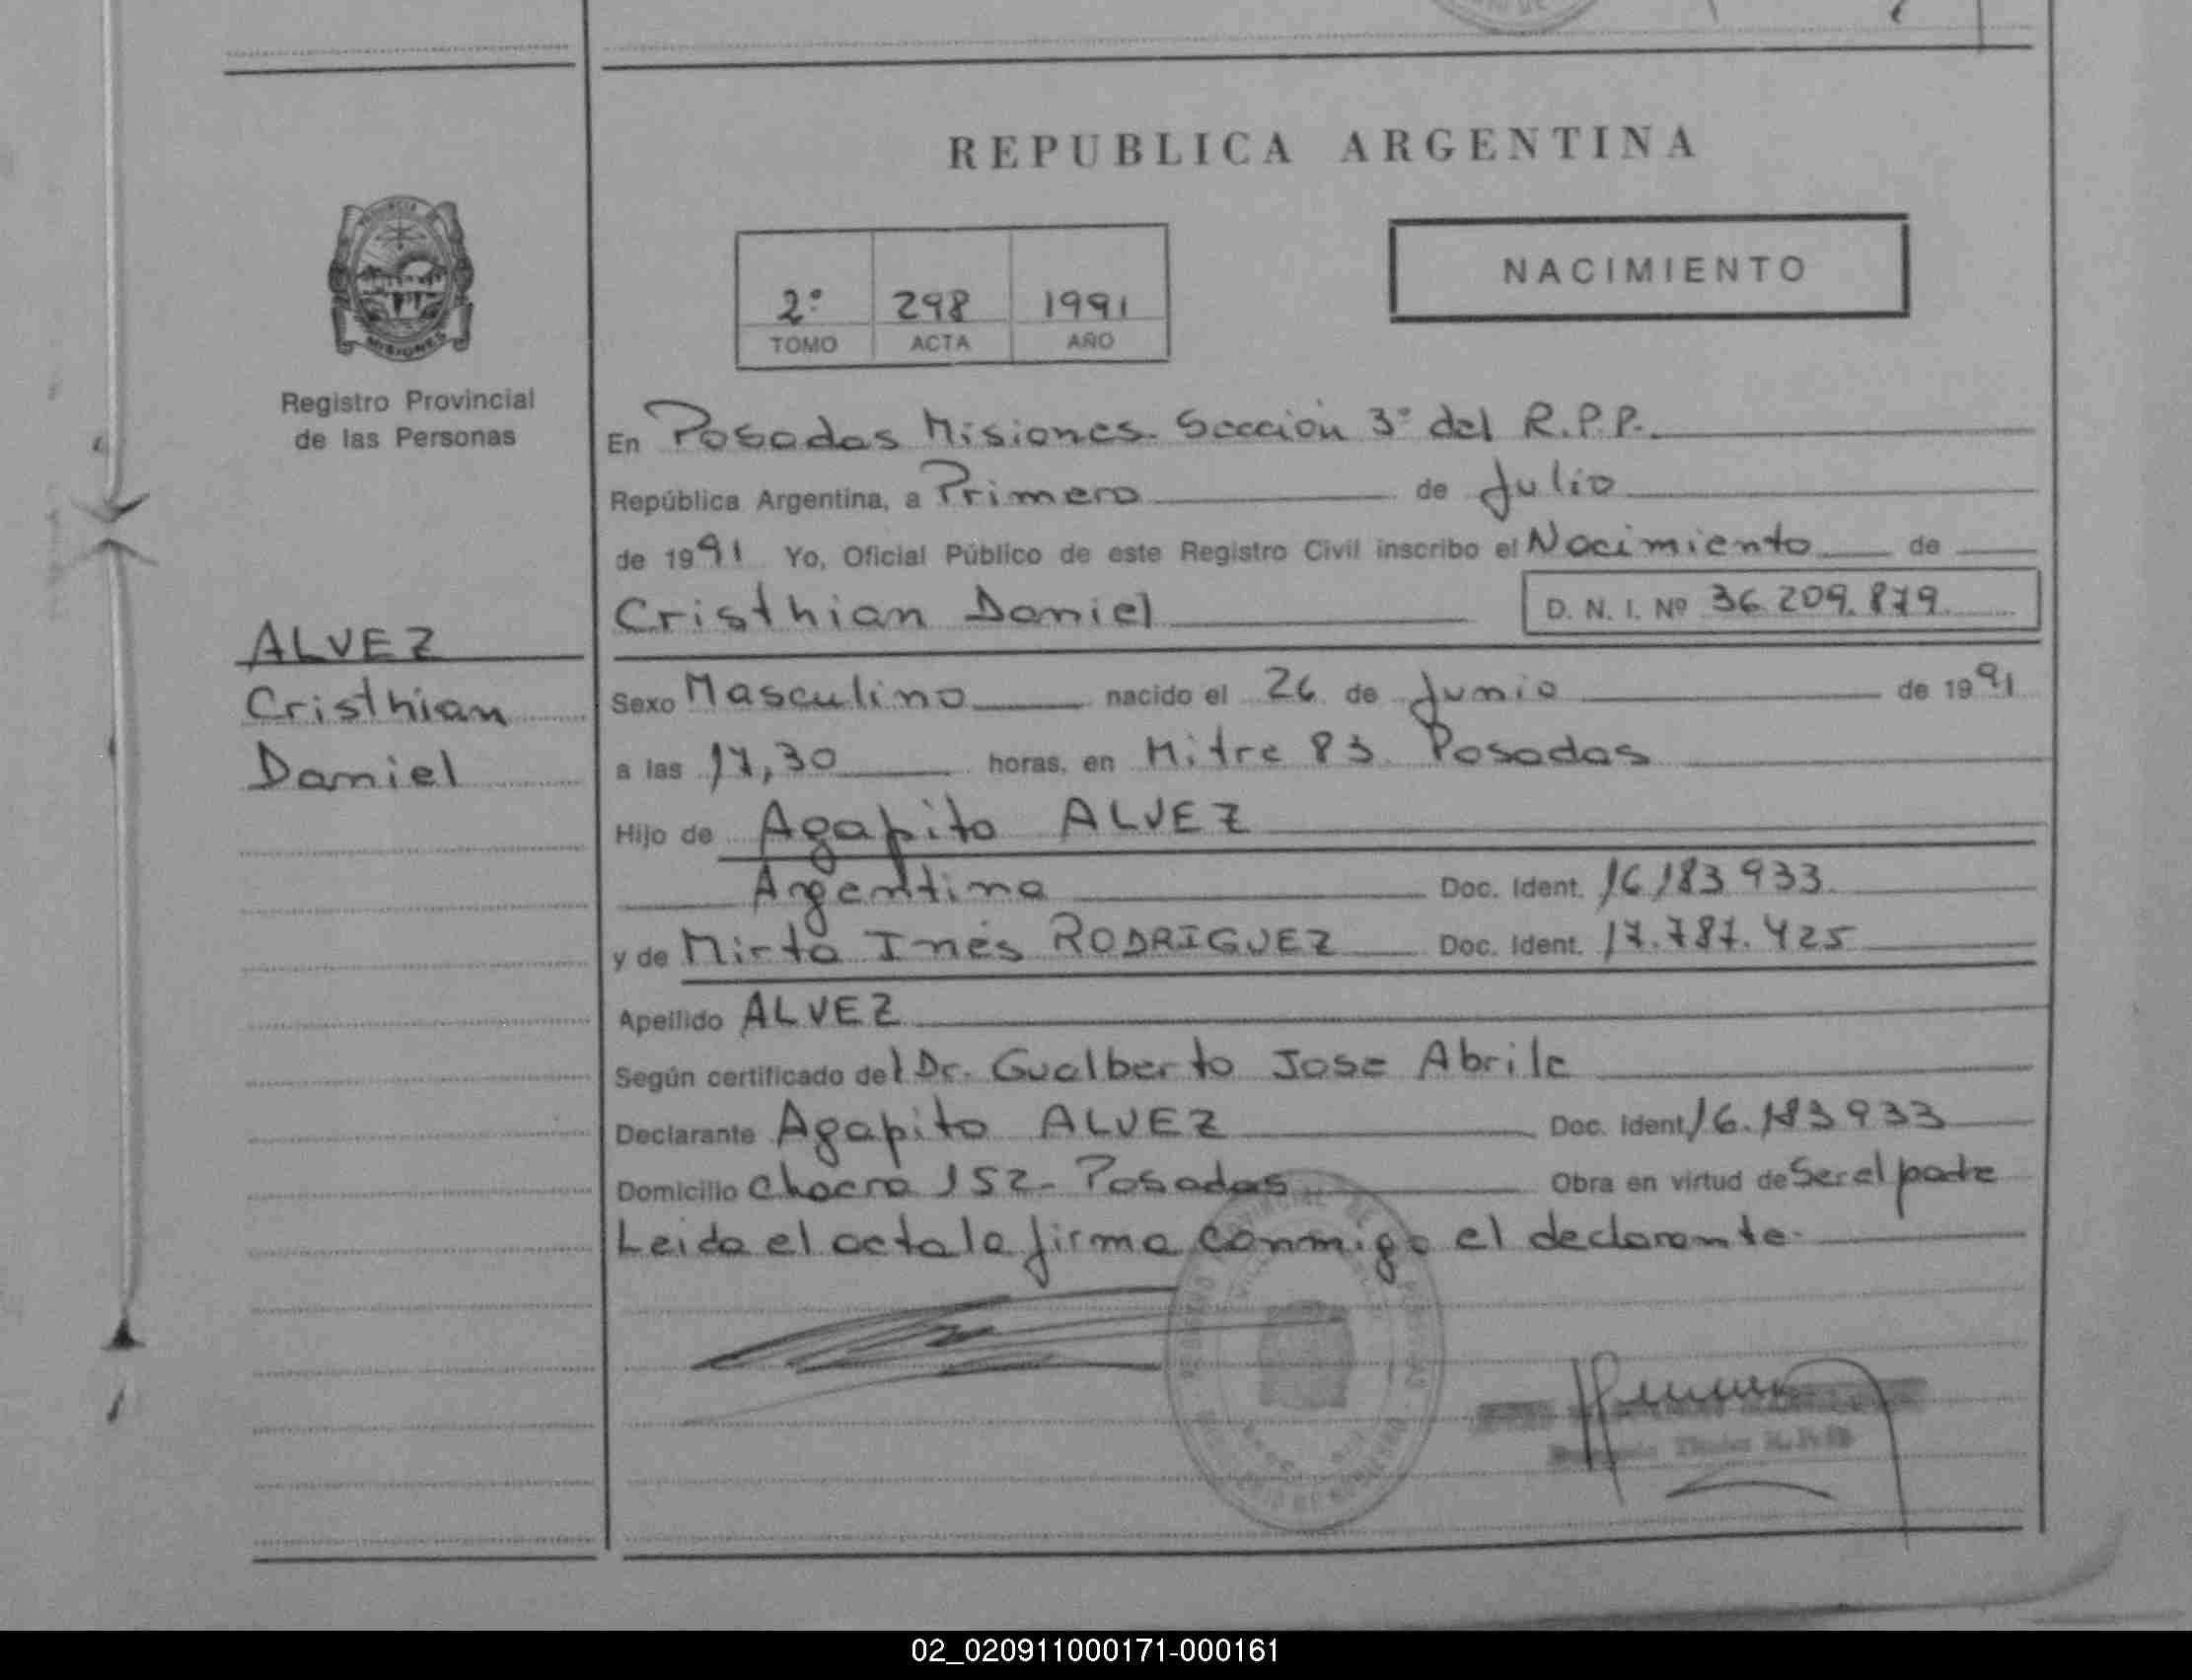 REPUBLICA ARGENTINA
NACIMIENTO
2º 298 1991
TOMO ACTA AÑO
MISIONES
Registro Provincial
de las Personas
ALVEZ
Cristhian
Daniel
En Posadas Misiones. Sección 3º del R.P.P.
República Argentina, a Primero de Julio
de 1991 Yo, Oficial Público de este Registro Civil inscribo el Nacimiento de
Cristhian Daniel D. N. I. Nº 36.209.879
Sexo Masculino nacido el 26 de Junio de 1991
a las 17,30 horas, en Mitre 83 Posadas
Hijo de Agapito ALVEZ
Argentina Doc. Ident. 16.183.933
y de Mirta Inés RODRIGUEZ Doc. Ident. 17.787.425
Apellido ALVEZ
Según certificado del Dr. Gualberto Jose Abrile
Declarante Agapito ALVEZ Doc. Ident. 16.183933
Domicilio Chacra 152- Posadas Obra en virtud de Ser el padre
Leida el acta la firma conmigo el declarante.
02_020911000171-000161